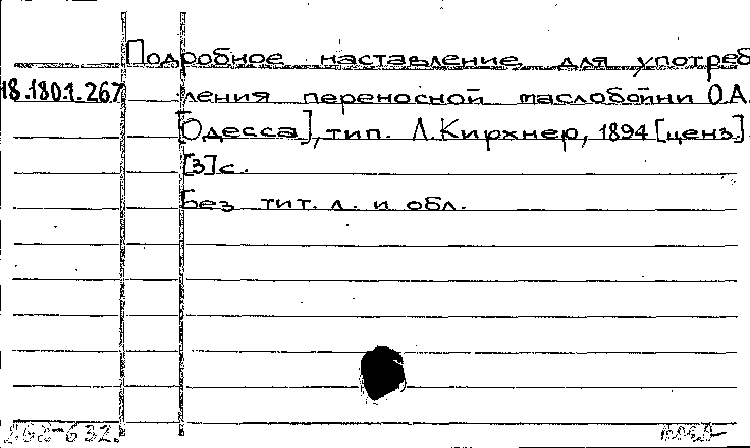 Подробное наставление для употреб
18.180.1.267 ления переносной маслобойни О.А.
[Одесса], тип. Л.Кирхнер, 1894 [ценз].
[3]с.
Без тит. л. и обл.